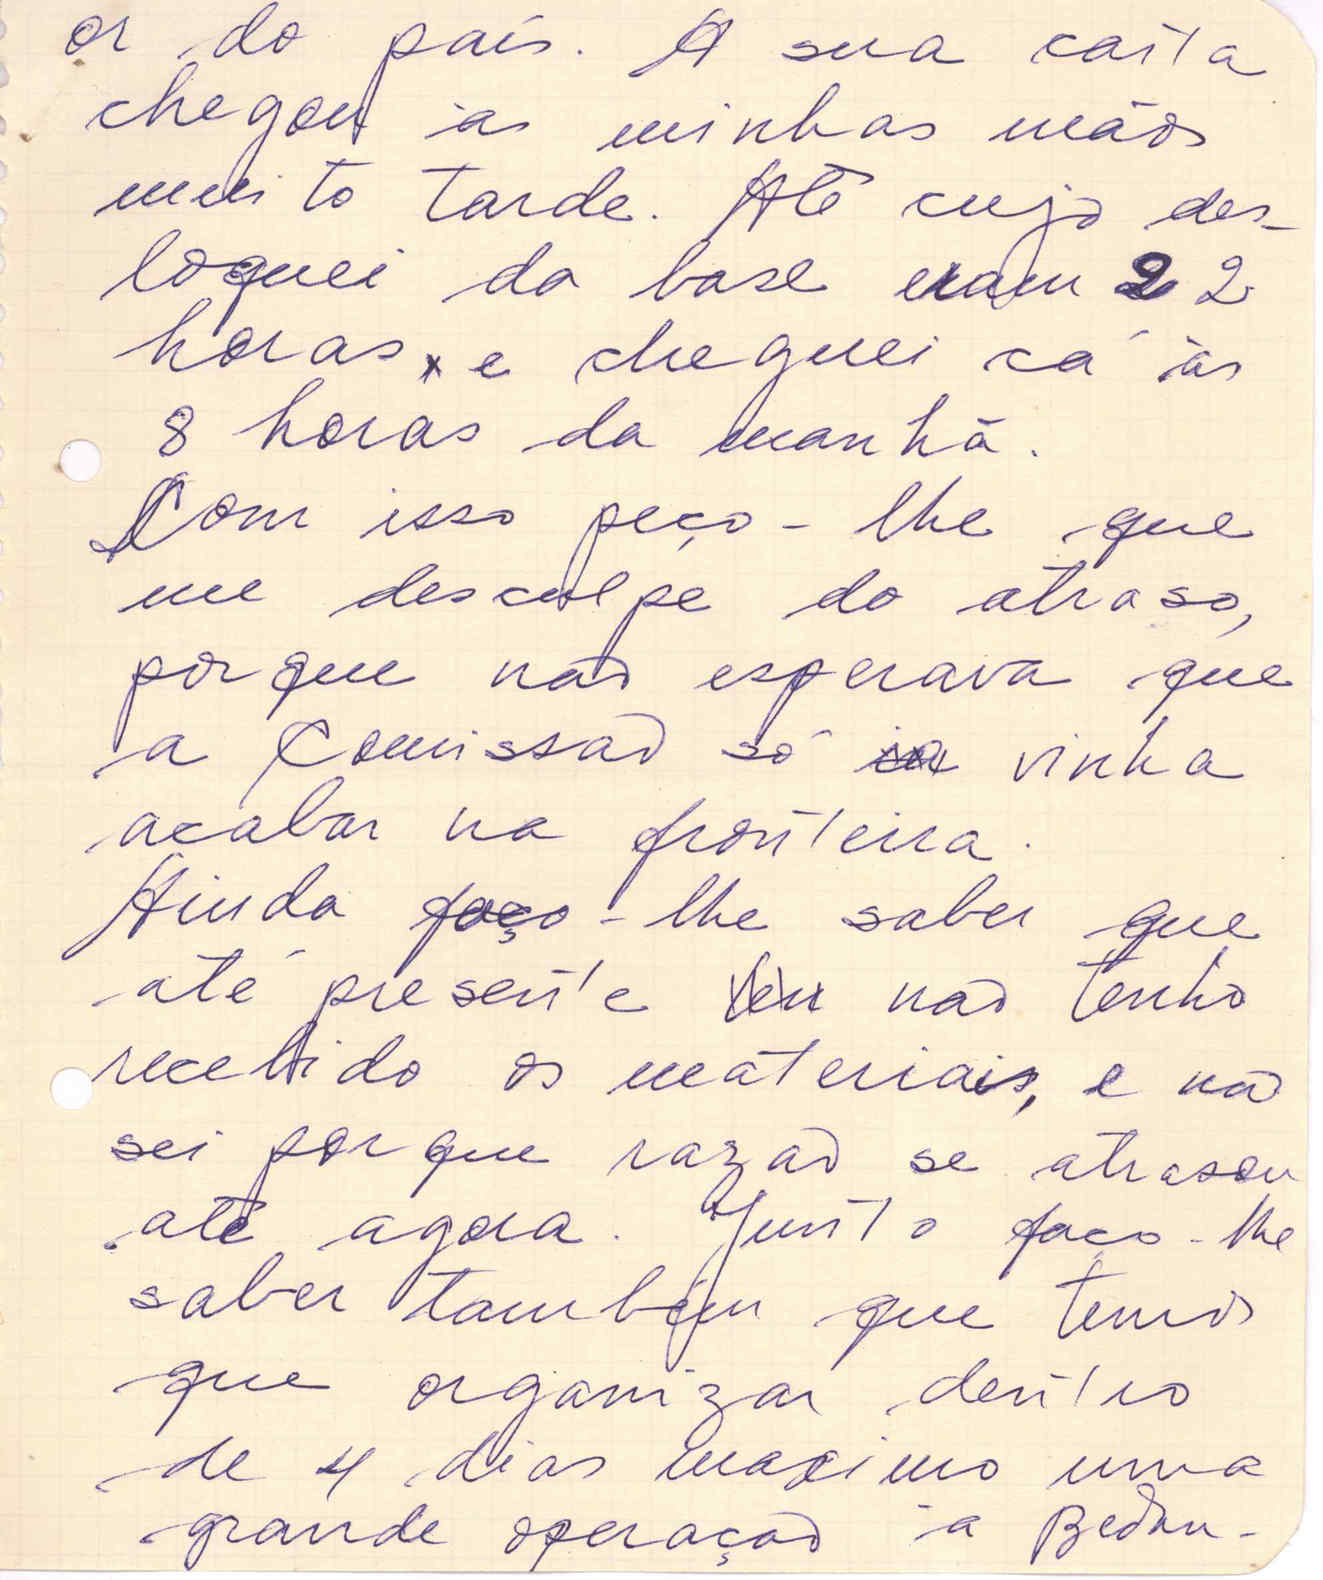 or do país. A sua carta
chegou às minhas mãos
muito tarde. Até cujo des-
loquei da base eram 22
horas, e cheguei cá às
8 horas da manhã.
Com isso peço-lhe que
me desculpe do atraso,
porque não esperava que
a Comissão só vinha
acabar na fronteira.
Ainda faço-lhe saber que
até presente não tenho
recebido os materiais, e não
sei porque razão se atrasou
até agora. Junto faço-lhe
saber também que temos
que organizar dentro
de 4 dias maximo uma
grande operação à Bedan-